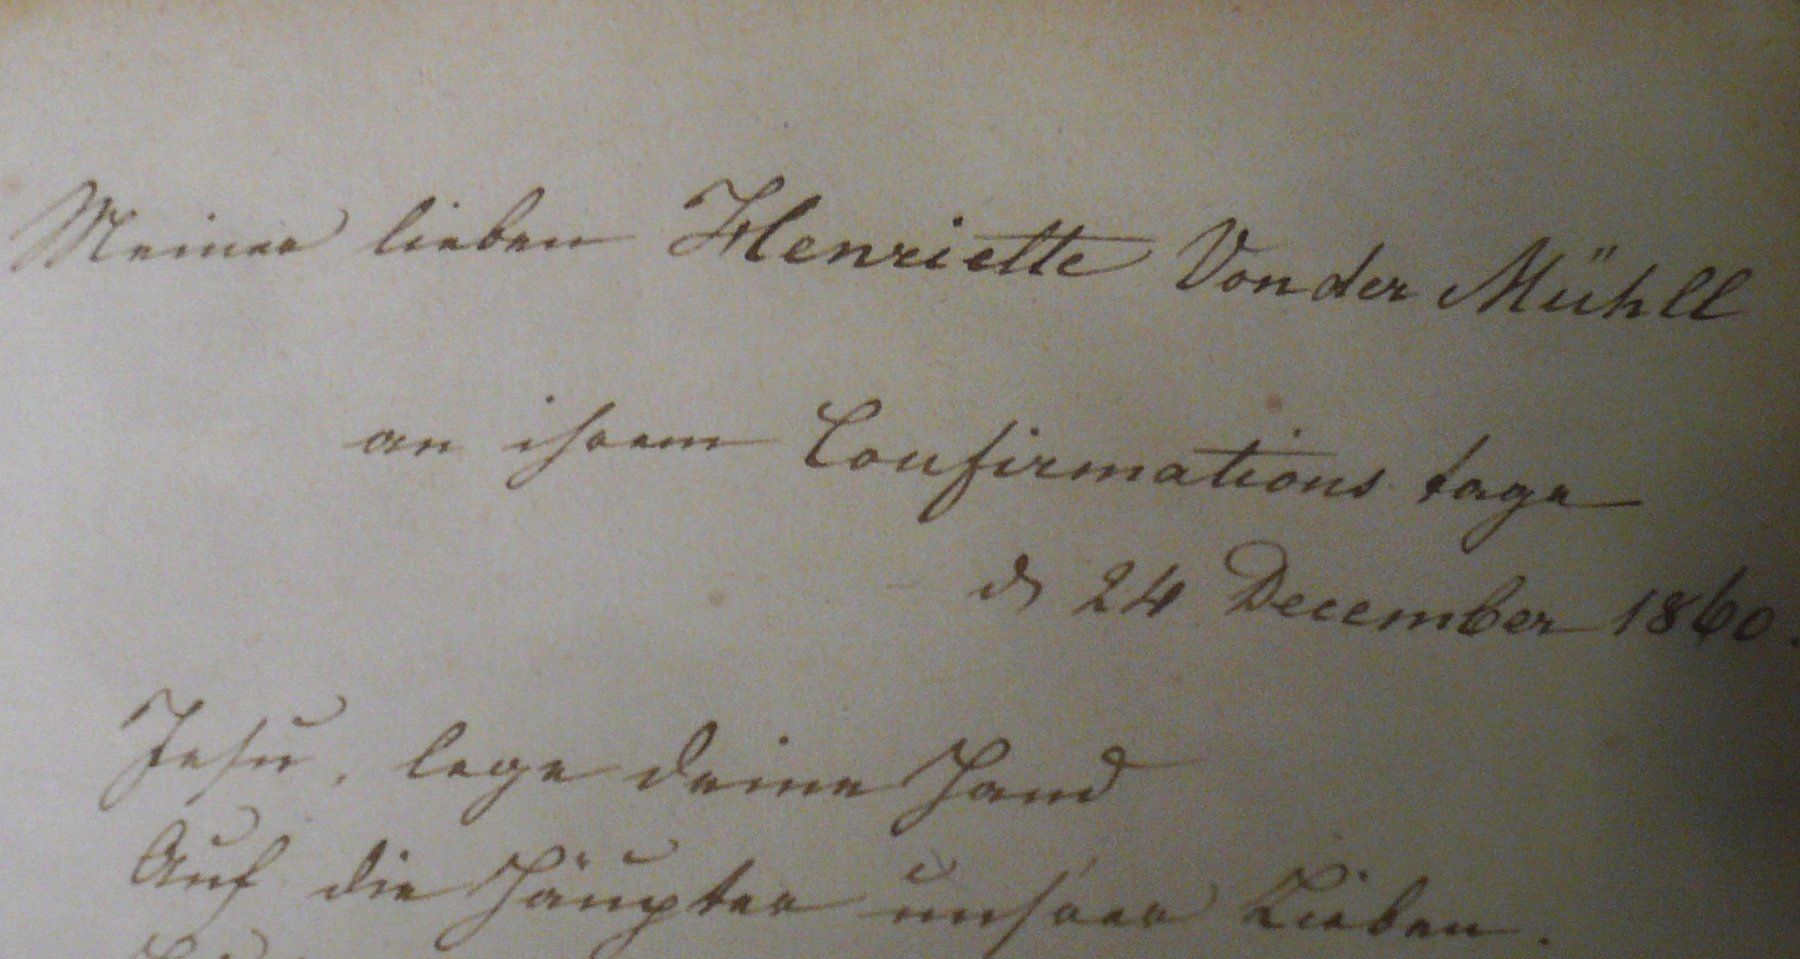 Meiner lieben Henriette Von der Mühll
an ihrem Confirmations tage
d 24 December 1860.
Jesu, lege deine Hand
Auf die Häupter unsrer Lieben.